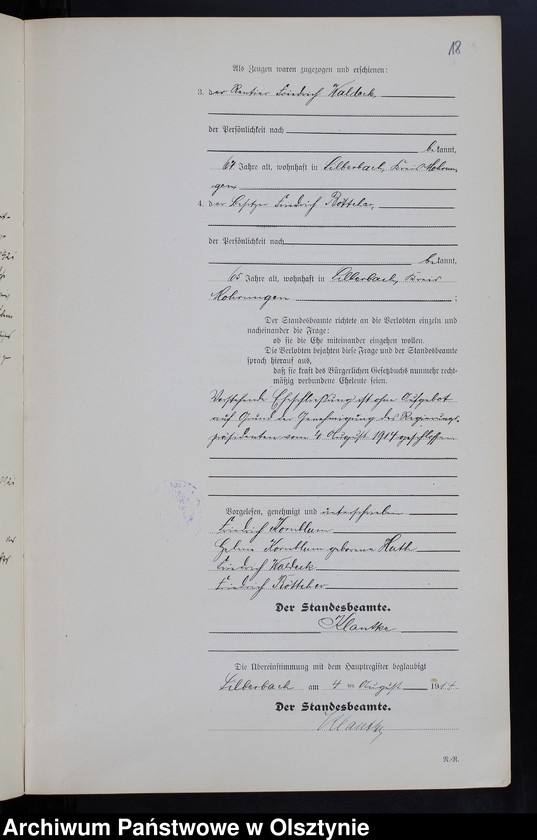 18
Als Zeugen waren zugezogen und erschienen:
3. der Rentier Friedrich Waldeck
der Persönlichkeit nach
bekannt,
67 Jahre alt, wohnhaft in Silberbach, Kreis Mohrun-
gen
4. der Besitzer Friedrich Böttcher,
der Persönlichkeit nach
bekannt,
65 Jahre alt, wohnhaft in Silberbach, Kreis
Mohrungen ;
Der Standesbeamte richtete an die Verlobten einzeln und
nacheinander die Frage:
ob sie die Ehe miteinander eingehen wollen.
Die Verlobten bejahten diese Frage und der Standesbeamte
sprach hierauf aus,
daß sie kraft des Bürgerlichen Gesetzbuchs nunmehr recht-
mäßig verbundene Eheleute seien.
Vorstehende Eheschließung ist ohne Aufgebot
auf Grund der Genehmigung des Regierungs-
präsidenten vom 4 August 1914 geschlossen
Vorgelesen, genehmigt und unterschrieben
Friedrich Kornblum
Kornblum geborene Huth
Friedrich Waldeck
Friedrich Böttcher
Der Standesbeamte.
Klautke
Die Übereinstimmung mit dem Hauptregister beglaubigt
Silberbach am 4 ten August 1914.
Der Standesbeamte.
Klautke
N.-R.
Archiwum Państwowe w Olsztynie